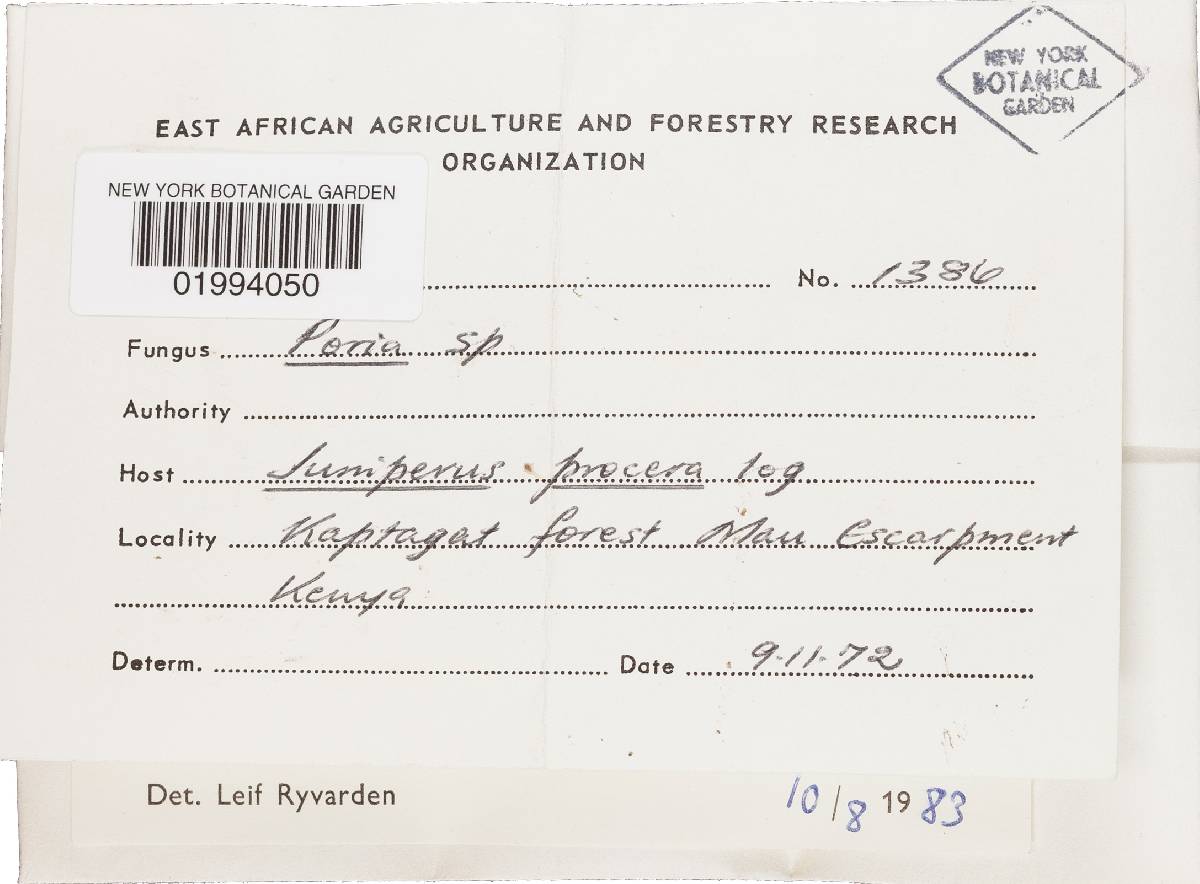 NEW YORK
BOTANICAL
GARDEN
EAST AFRICAN AGRICULTURE AND FORESTRY RESEARCH
ORGANIZATION
NEW YORK BOTANICAL GARDEN
01994050
No. 1386
Fungus Poria sp
Authority
Host Juniperus procera log
Locality Kaptagat forest Mau Escarpment
Kenya
Determ. Date 9.11.72
Det. Leif Ryvarden 10/8 1983